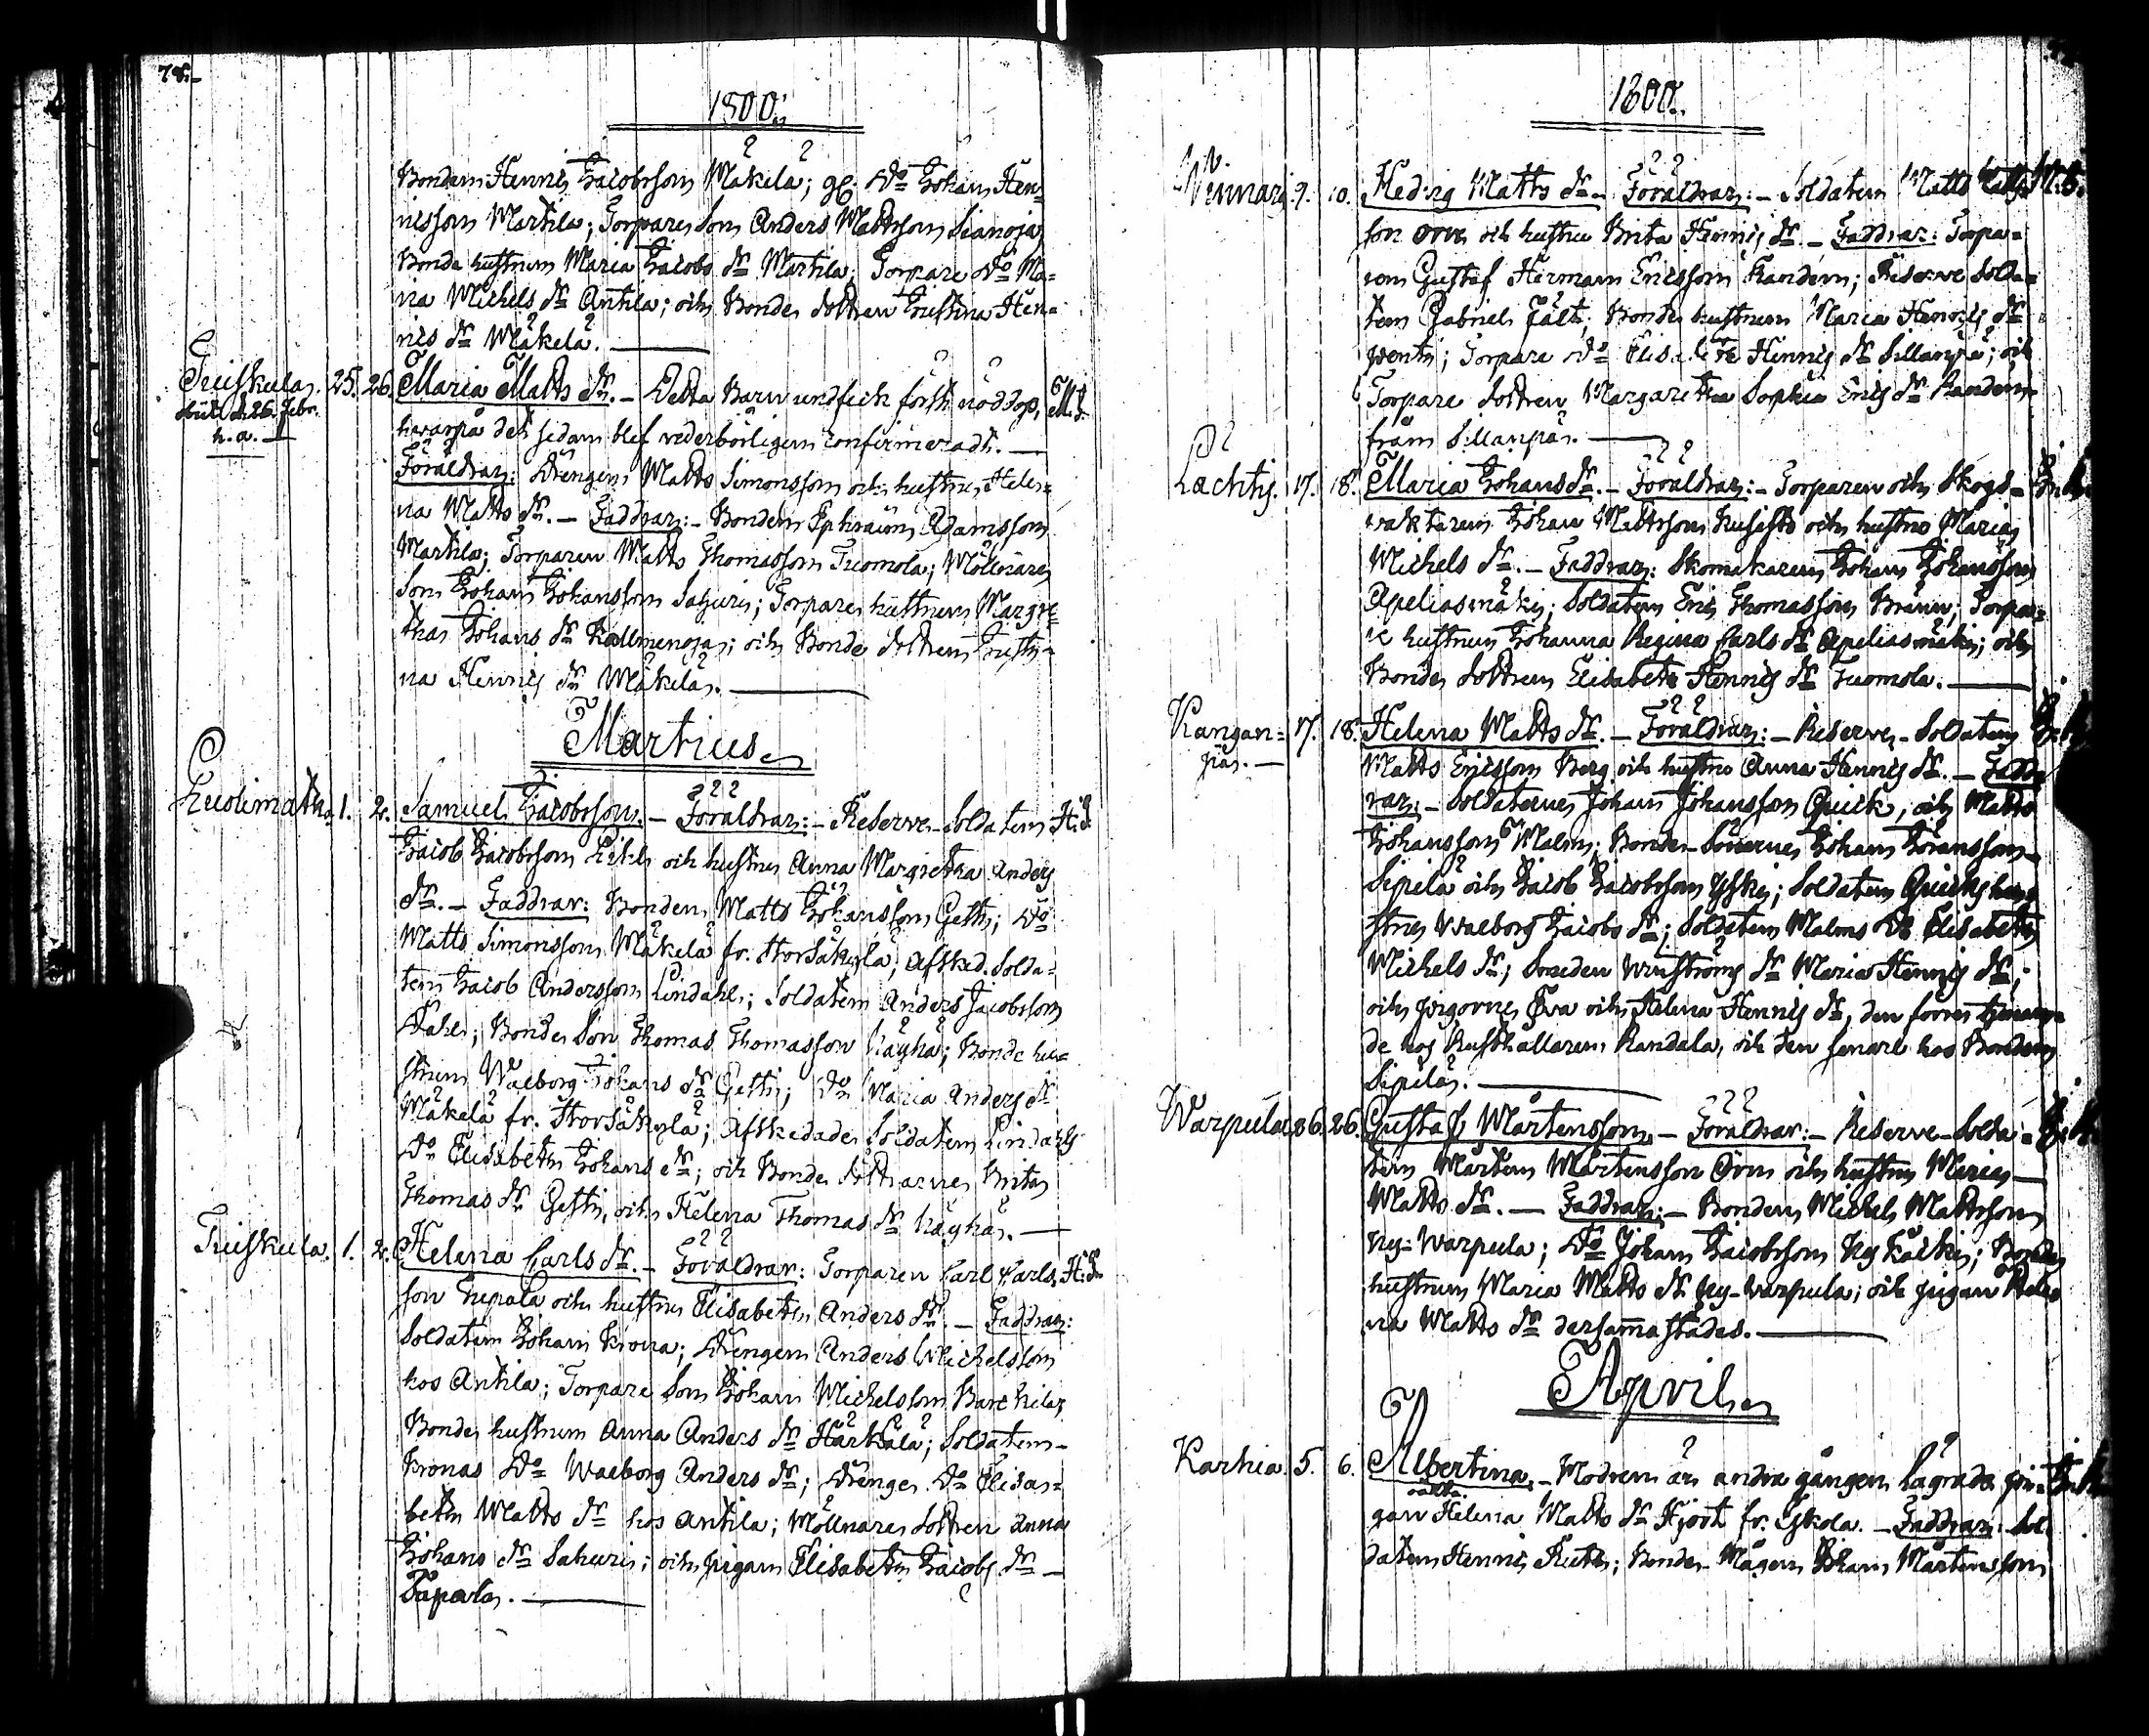 78.
1800.
Bonden Henric Jacobsson Mäkelä; gl. Do Johan Hen-
ricsson Martila; Torpare Son Anders Mattsson Sianoja,
Bonde hustrun Maria Jacobs dr Martila; Torpare Do Ma-
ria Michels dr Antila; och Bonde dottren Christina Hen-
rics dr Mäkelä.
Tuiskula. 25. 26. Maria Matts dr. - Detta Barn undfick först nöddop,
död d. 26. Febr.
h. a.
hvarpå det sedan blef vederbörligen confirmeradt.
Föräldrar: Drengen Matts Simonsson och hustru Hele-
na Matts dr. - Faddrar: - Bonden Ephraim Adamsson
Martila; Torparen Matts Thomasson Tuomola; Möllnare
Son Johan Johansson Sahuri; Torpare hustrun Margre-
tha Johans dr Kallmenoja; och Bonde dottren Christi-
na Henrics dr Mäkelä.
Martius
1. 2. Samuel Jacobsson. - Föräldrar: - Reserve-Soldaten
Jacob Jacobsson och hustru Anna Margretha Anders
dr. - Faddrar: Bonden Matts Johansson Getti; Do
Matts Simonsson Mäkelä fr. Stor Säkylä; Afsked. Solda-
ten Jacob Andersson Lindahl; Soldaten Anders Jacobsson
Dahl; Bonde Son Thomas Thomasson Käyhä; Bonde hu-
strun Walborg Johans dr Getti; Do Maria Anders dr
Mäkelä fr. Stor Säkylä; Afskedade Soldaten Lindahls
Do Elisabeth Johans dr; och Bonde döttrarne Brita
Thomas dr Getti, och Helena Thomas dr Käyhä.
Tuiskula. 1. 2. Helena Carls dr. - Föräldrar: Torparen Carl Carls-
son och hustru Elisabeth Anders dr. - Faddrar:
Soldaten Johan Krona; Drengen Anders Michelsson
hos Antila; Torpare Son Johan Michelsson
Bonde hustrun Anna Anders dr Härkälä; Soldaten
Kronas Do Walborg Anders dr; Drenge Do Elisa-
beth Matts dr hos Antila; Möllnare dottren Anna
Johans dr Sahuri; och pigan Elisabeth Jacobs dr
1800.
9. 10. Hedvig Matts dr. - Föräldrar: - Soldaten Matts Matts-
son Orre och hustru Brita Henrics dr. - Faddrar: Torpa-
ren Gustaf Herman Ericsson Randén; Reserve Solda-
ten Gabriel Fält; Bonde hustrun Maria Henrics dr
Torpare Do Elisabeth Henrics dr Sillanpä; och
Torpare dottren Margaretha Sophia Erics dr Randén
från Sillanpä.
Lachti. 17. 18. Maria Johans dr. - Föräldrar: - Torparen och Skogs-
vaktaren Johan Mattsson Kusisto och hustru Maria
Michels dr. - Faddrar: Skomakaren Johan Johansson
Apeliasmäki; Soldaten Eric Thomasson Brunn; Torpa-
re hustrun Johanna Regina Carls dr Apeliasmäki; och
Bonde dottren Elisabeth Henrics dr Tuomola.
Kangan- 17. 18. Helena Matts dr. - Föräldrar: - Reserve-Soldaten
pä.
Matts Ericsson Berg och hustru Anna Henrics dr. - Fadd-
rar: - Soldaterne Johan Johansson Quick, och Matts
Johansson Malm; Bonde-Sönerne Johan Göransson
Sipilä och Jacob Jacobsson Yski; Soldaten Quicks hu-
stru Walborg Jacobs dr; Soldaten Malms Do Elisabeth
Michels dr; Maria Henrics dr;
och pigorne Eva och Helena Henrics dr, den förra tjenan-
de hos Rusthållaren Randala, och den senare hos Bonden
Sipilä.
Warpula. 26. 26. Gustaf Mårtensson. - Föräldrar: - Reserve-Solda-
ten Mårten Mårtensson Orm och hustru Maria
Matts dr. - Faddrar: - Bonden Michel Mattsson
Ny-Warpula; Do Johan Jacobsson Ny Kärki; Bonde
hustrun Maria Matts dr Ny-Warpula; och pigan Hele-
na Matts dr dersammastädes.
April
Karhia. 5. 6. Albertina. - Modren är andra gången lägrade pi-
oäkta.
gan Helena Matts dr Hjort fr. Eskola. - Faddrar: Sol-
daten Henric Ruth; Bonde-Mågen Johan Mårtensson